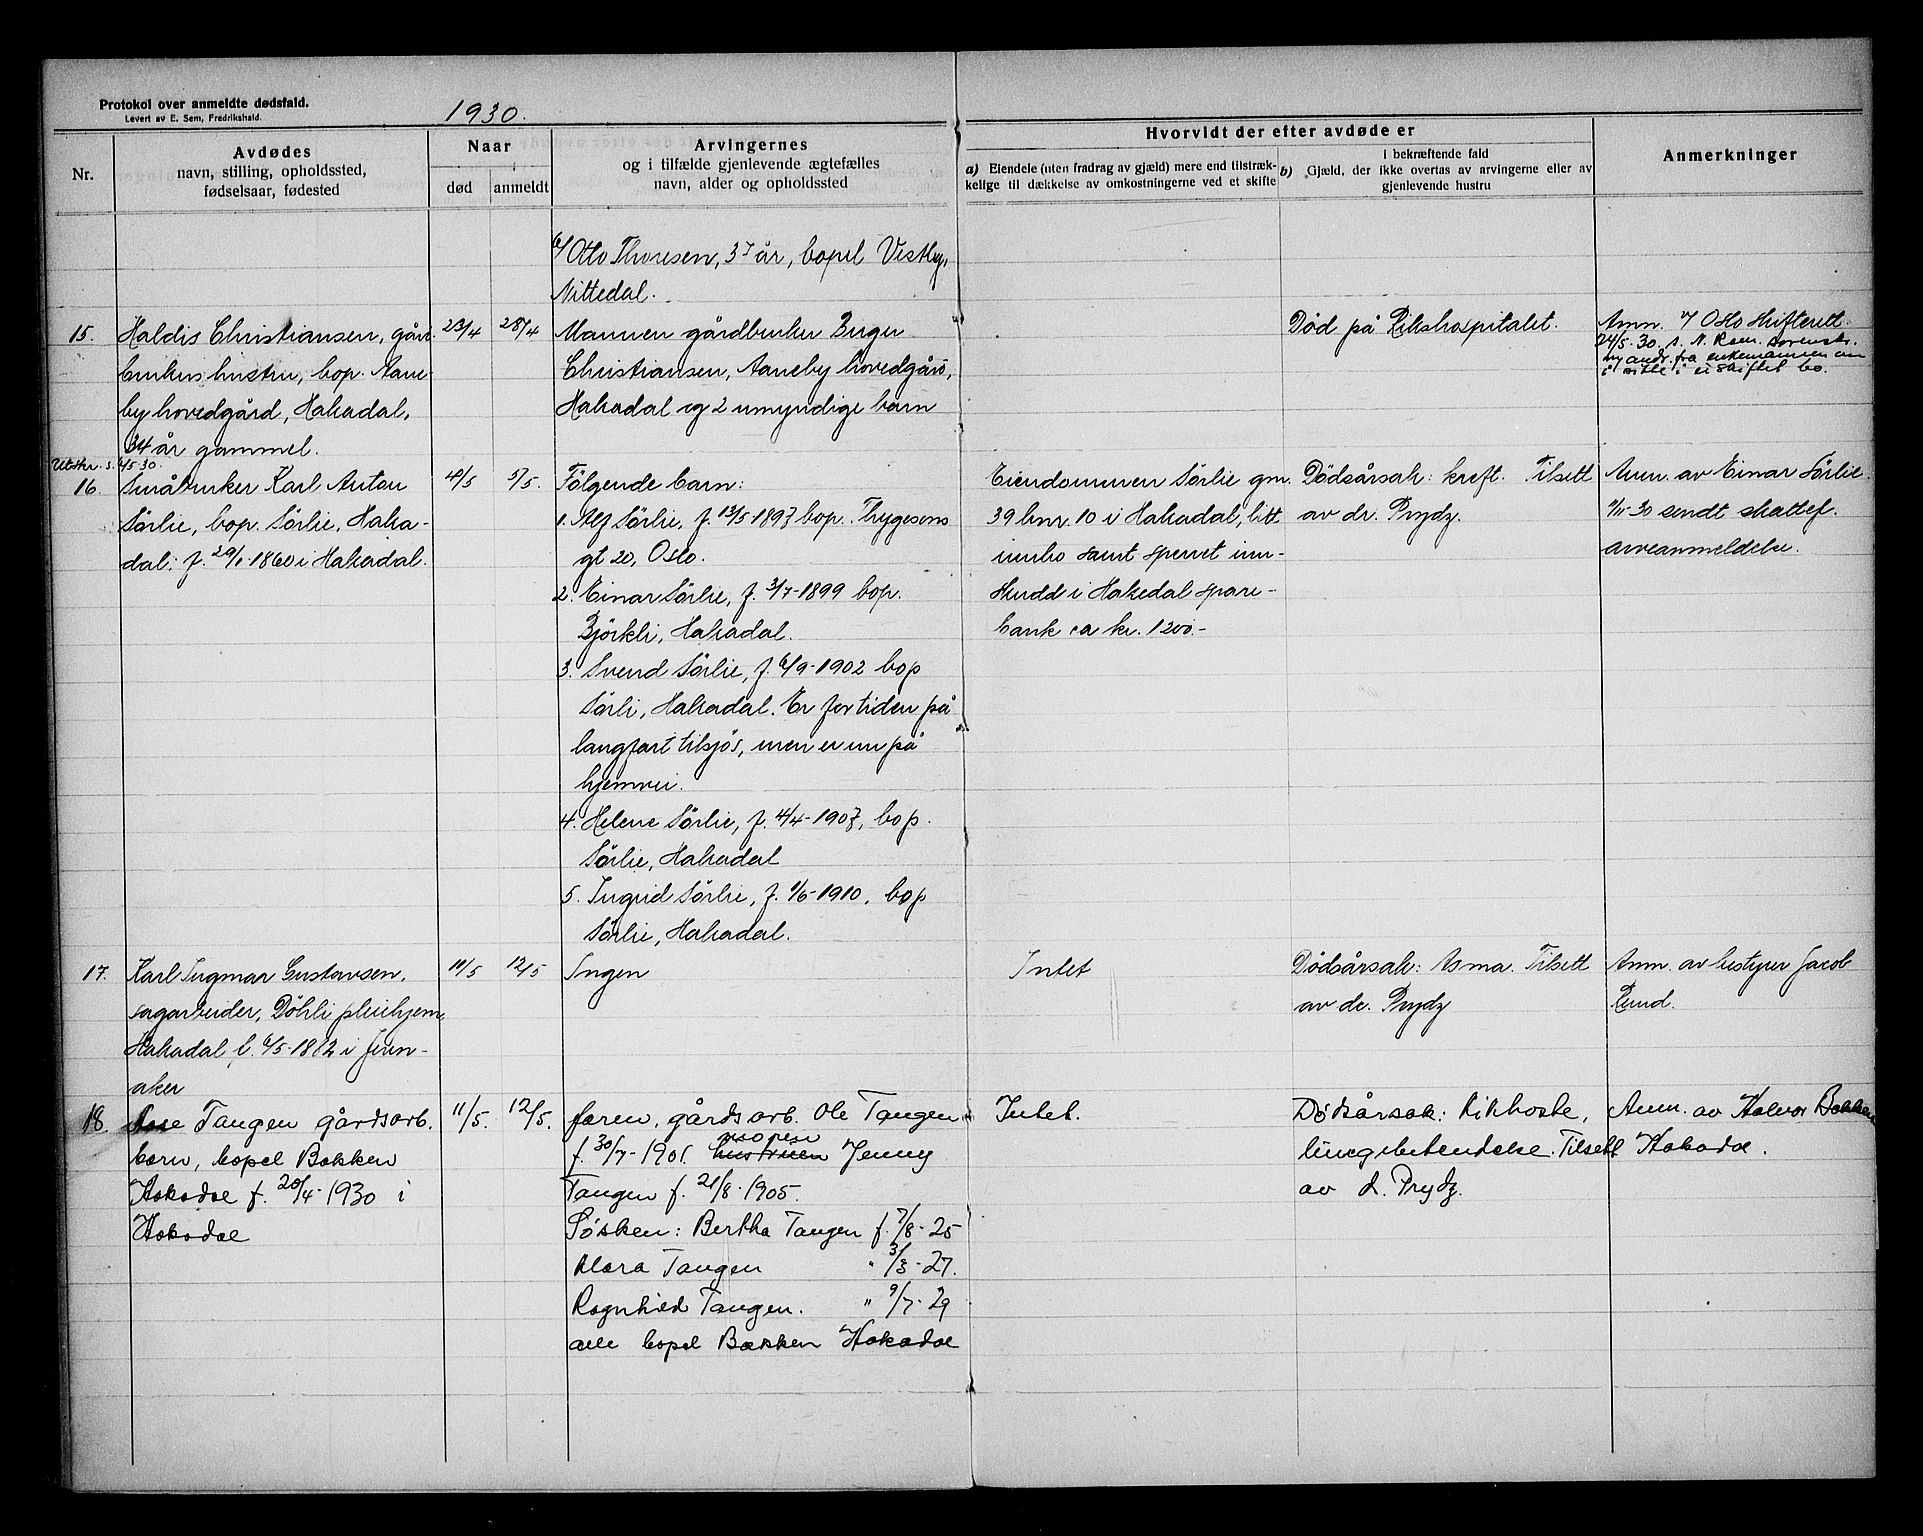 Protokol over anmeldte dødsfald.
Levert av E. Sem, Fredrikshald.
1930.
Nr.
Avdødes
navn, stilling, opholdssted,
fødselsaar, fødested
Naar
død
anmeldt
Arvingernes
og i tilfælde gjenlevende ægtefælles
navn, alder og opholdssted
Hvorvidt der efter avdøde er
a) Eiendele (uten fradrag av gjæld) mere end tilstræk-
kelige til dækkelse av omkostningerne ved et skifte
b)
I bekræftende fald
Gjæld, der ikke overtas av arvingerne eller av
gjenlevende hustru
Anmerkninger
6/ Otto Thoresen, 37 år, bopel Vestby,
Nittedal.
15.
Haldis Christiansen, gård-
brukers hustru, bop. Aane-
by hovedgård, Hakadal,
34 år gammel.
23/4
28/4
Mannen gårdbruker Birger
Christiansen, Aaneby hovedgård,
Hakadal og 2 umyndige barn
Død på Rikshospitalet.
Anm. t/ Oslo skifterett
24/5-30 s. N. Rom. sorenskr.
andr. fra enkemannen om
i sitte i uskiftet bo.
Utskr. s. 6/5 30.
16.
Småbruker Karl Anton
Sörlie, bop. Sörlie, Haka-
dal; f. 29/1-1860 i Hakadal.
4/5
5/5.
Følgende barn:
1. Alf Sörlie, f. 13/5-1897 bop. Thygesens
gt 20, Oslo.
2. Einar Sörlie, f. 3/7-1899 bop.
Björkli, Hakadal.
3. Svend Sörlie, f. 6/9-1902 bop
Sörli, Hakadal. Er for tiden på
langfart tilsjøs, men er nu på
hjemvei.
4. Helene Sörlie, f. 4/4-1907, bop.
Sörlie, Hakadal
5. Ingrid Sörlie, f. 1/6-1910, bop
Sörlie, Hakadal.
Eiendommen Sörlie gnr.
39 bnr. 10 i Hakadal, litt
innbo samt sperret inn-
skudd i Hakedal spare-
bank ca kr. 1200.-
Dödsårsak: kreft. Tilsett
av dr. Prydz.
Anm. av Einar Sörlie.
1/11-30 sendt skattef.
arveanmeldelse.
17.
Karl Ingmar Gustavsen,
sagarbeider, Döhli pleiehjem,
Hakadal f. 6/5-1882 i Jevn-
aker
11/5
12/5
Ingen
Intet
Dödsårsak: Asma. Tilsett
av dr. Prydz
Anm. av bestyrer Jacob
Rund.
18.
Åse Tangen gårdsarb.
barn, bopel Bakken
Hakadal f. 20/4-1930 i
Hakadal
11/5.
12/5.
faren, gårdsarb. Ole Tangen
f. 30/7-1901. hustruen Jenny
Tangen f. 21/8-1905.
Søsken: Bertha Tangen f. 7/8-25
Klara Tangen " 3/3-27.
Ragnhild Tangen. " 9/7-29
alle bopel Bakken Hakadal
Intet.
Dødsårsak: Kikhoste,
lungebetendelse. Tilsett
av d. Prydz.
Anm. av Halvor Bakken
Hakadal.